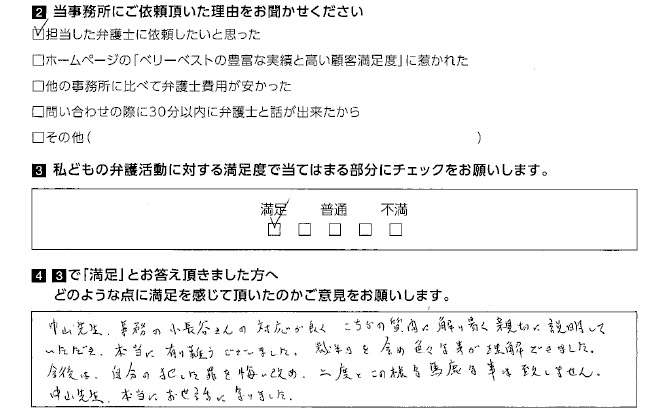 2 当事務所にご依頼頂いた理由をお聞かせください
☑担当した弁護士に依頼したいと思った
□ホームページの「ベリーベストの豊富な実績と高い顧客満足度」に惹かれた
□他の事務所に比べて弁護士費用が安かった
□問い合わせの際に30分以内に弁護士と話が出来たから
□その他( )
3 私どもの弁護活動に対する満足度で当てはまる部分にチェックをお願いします。
満足 普通 不満
☑ □ □ □ □
4 3で「満足」とお答え頂きました方へ
どのような点に満足を感じて頂いたのかご意見をお願いします。
中山先生、事務の小長谷さんの対応が良く こちらの質問に解り易く親切に説明して
いただき、本当に有り難うございました。裁判を含め色々な事が理解できました。
今後は、自分の犯した罪を悔い改め、二度とこの様な馬鹿な事は致しません。
中山先生、本当にお世話になりました。